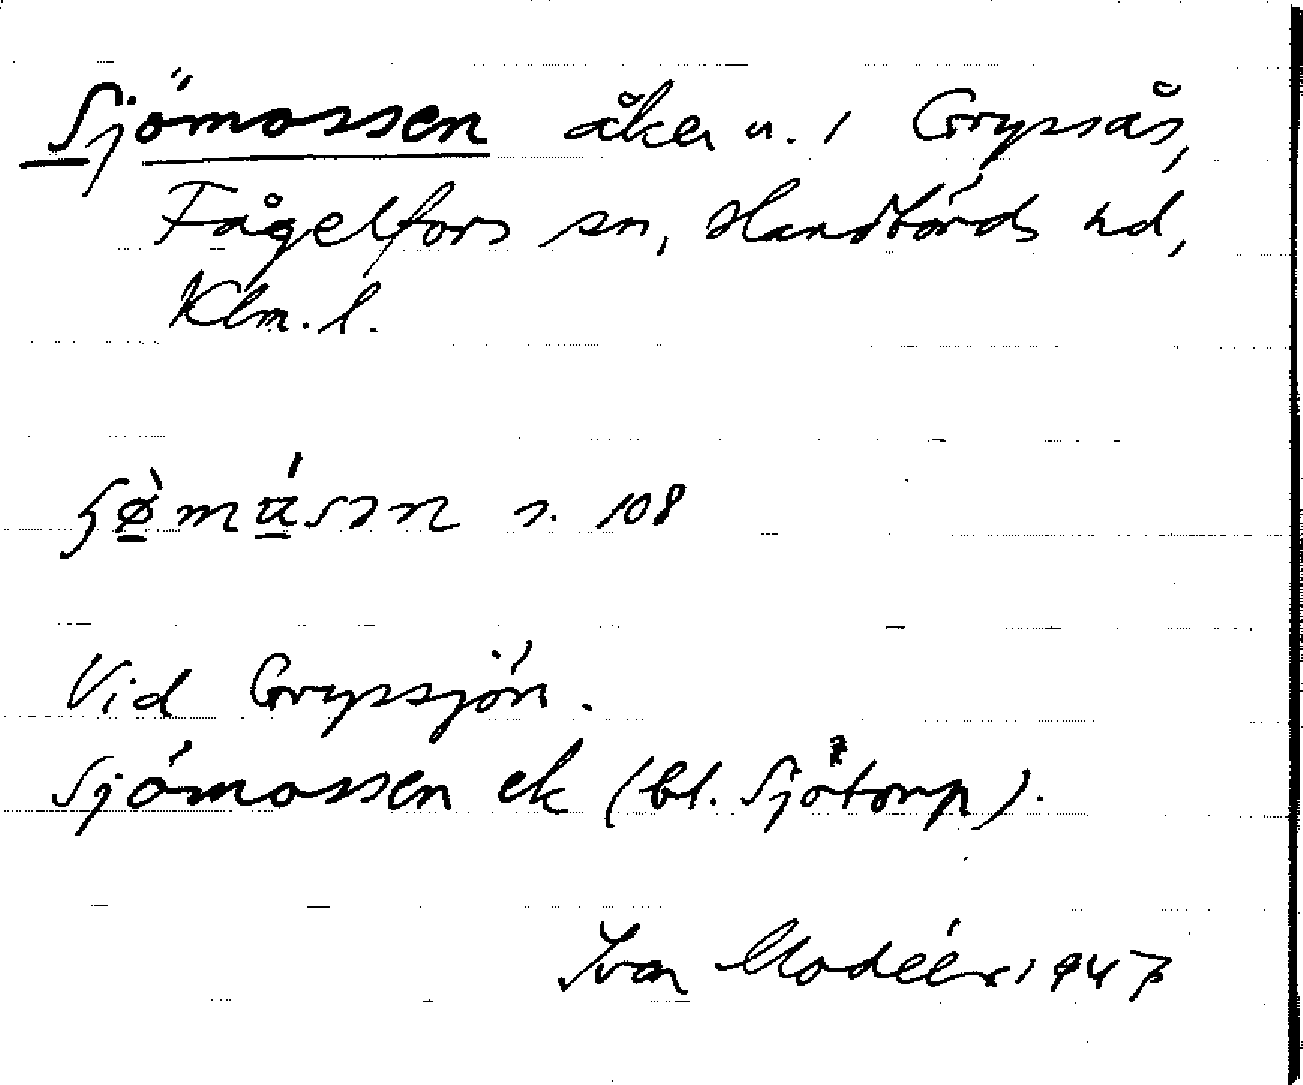 Sjömossen åker u. 1 Gryssås,
Fågelfors sn, Handbörds hd,
Klm. l.
s. 108
Vid Gryssjön.
Sjömossen ek (bl. Sjötorp).
Ivar Modéer 1947